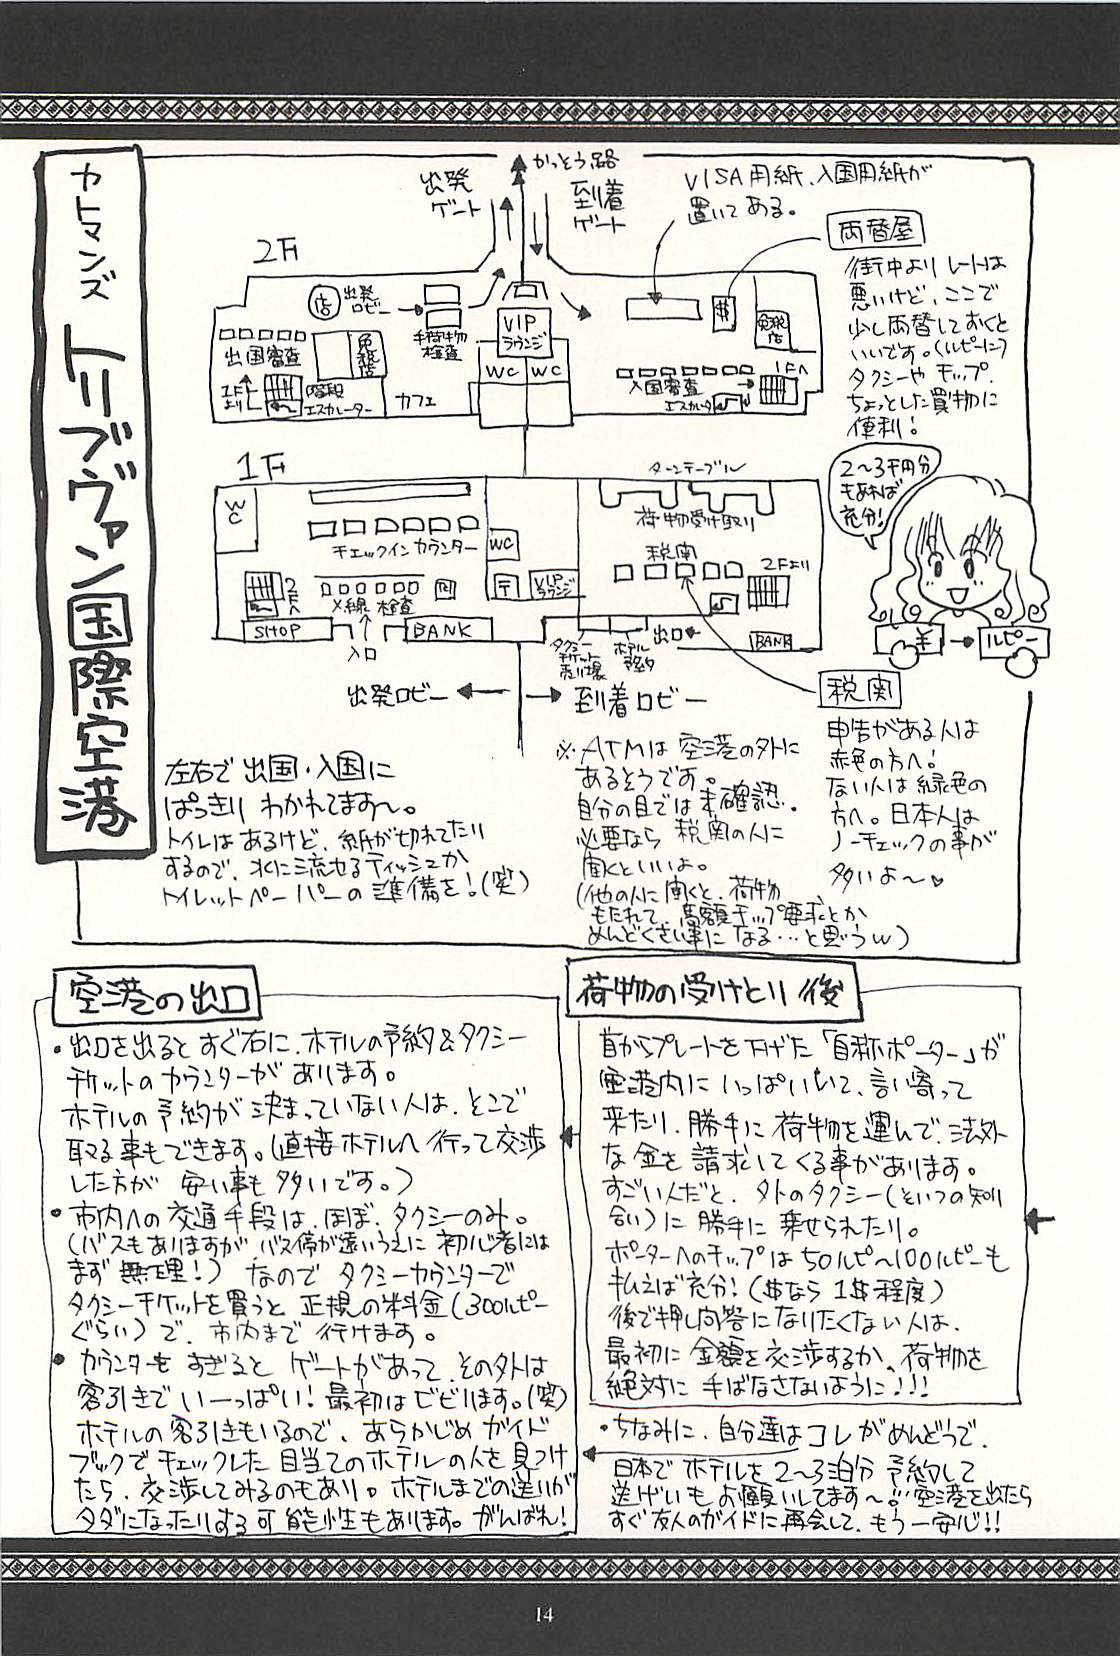 カトマンズ
トリブヴァン国際空港
かっとう路
出発
ゲート
到着
ゲート
VISA用紙、入国用紙が
置いてある。
両替屋
街中より レートは
悪いけど、ここで
少し両替しておくと
いいです。(ルピーに)
タクシーや チップ、
ちょっとした買物に
便利!
2〜3千円分
もあれば
充分!
¥
ルピー
2F
店
出発
ロビー
手荷物
検査
VIP
ラウンジ
WC
WC
出国審査
免税
店
1F
より
階段
エスカレーター
カフェ
$
免税
店
入国審査
エスカレータ
1Fへ
1F
WC
チェックインカウンター
2Fへ
X線 検査
SHOP
入口
BANK
WC
〒
VIP
ラウンジ
ターンテーブル
荷物受け取り
税関
2Fより
タクシー
チケット
売り場
ホテル
予約
出口
BANK
出発ロビー
到着ロビー
税関
申告がある人は
赤色の方へ!
ない人は緑色の
方へ。日本人は
ノーチェックの事が
多いよ〜♥
左右で 出国・入国に
ぱっきり わかれてます〜。
トイレはあるけど、紙が切れてたり
するので、水に流せるティッシュか
トイレットペーパーの準備を!(笑)
※ATMは 空港の外に
あるそうです。
自分の目では未確認。
必要なら 税関の人に
聞くといいよ。
(他の人に聞くと、荷物
もたれて、高額チップ要求とか
めんどくさい事に なる…と思うw)
空港の出口
・出口を出ると すぐ右に、ホテルの予約&タクシー
チケットのカウンターが あります。
ホテルの予約が決まっていない人は、そこで
取る事もできます。(直接ホテルへ行って交渉
した方が 安い事も 多いです。)
・市内への 交通手段は、ほぼ、タクシーのみ。
(バスもありますが バス停が遠いうえに 初心者には
まず 無理!) なので タクシーカウンターで
タクシーチケットを買うと 正規の料金(300ルピー
ぐらい)で、市内まで 行けます。
・カウンターを すぎると ゲートがあって、その外は
客引きで いーっぱい! 最初はビビります。(笑)
ホテルの 客引きもいるので、あらかじめ ガイド
ブックで チェックした 目当てのホテルの人を見つけ
たら、交渉してみるのもあり。ホテルまでの送りが
タダになったりする可能性もあります。がんばれ!
荷物の受けとり後
首からプレートを下げた「自称ポーター」が
空港内に いっぱいいて、言い寄って
来たり、勝手に 荷物を運んで、法外
な金を 請求してくる事があります。
すごい人だと、外のタクシー(そいつの知り
合い)に 勝手に 乗せられたり。
ポーターへのチップは 50ルピー〜100ルピーも
払えば充分! ($なら 1$程度)
後で押し問答に なりたくない人は、
最初に 金額を交渉するか、荷物を
絶対に 手ばなさないように!!!
・ちなみに、自分達は コレがめんどうで、
日本で ホテルを 2〜3泊分 予約して
送迎もお願いしてます〜!空港を出たら
すぐ友人のガイドに再会して、もう一安心!!
14